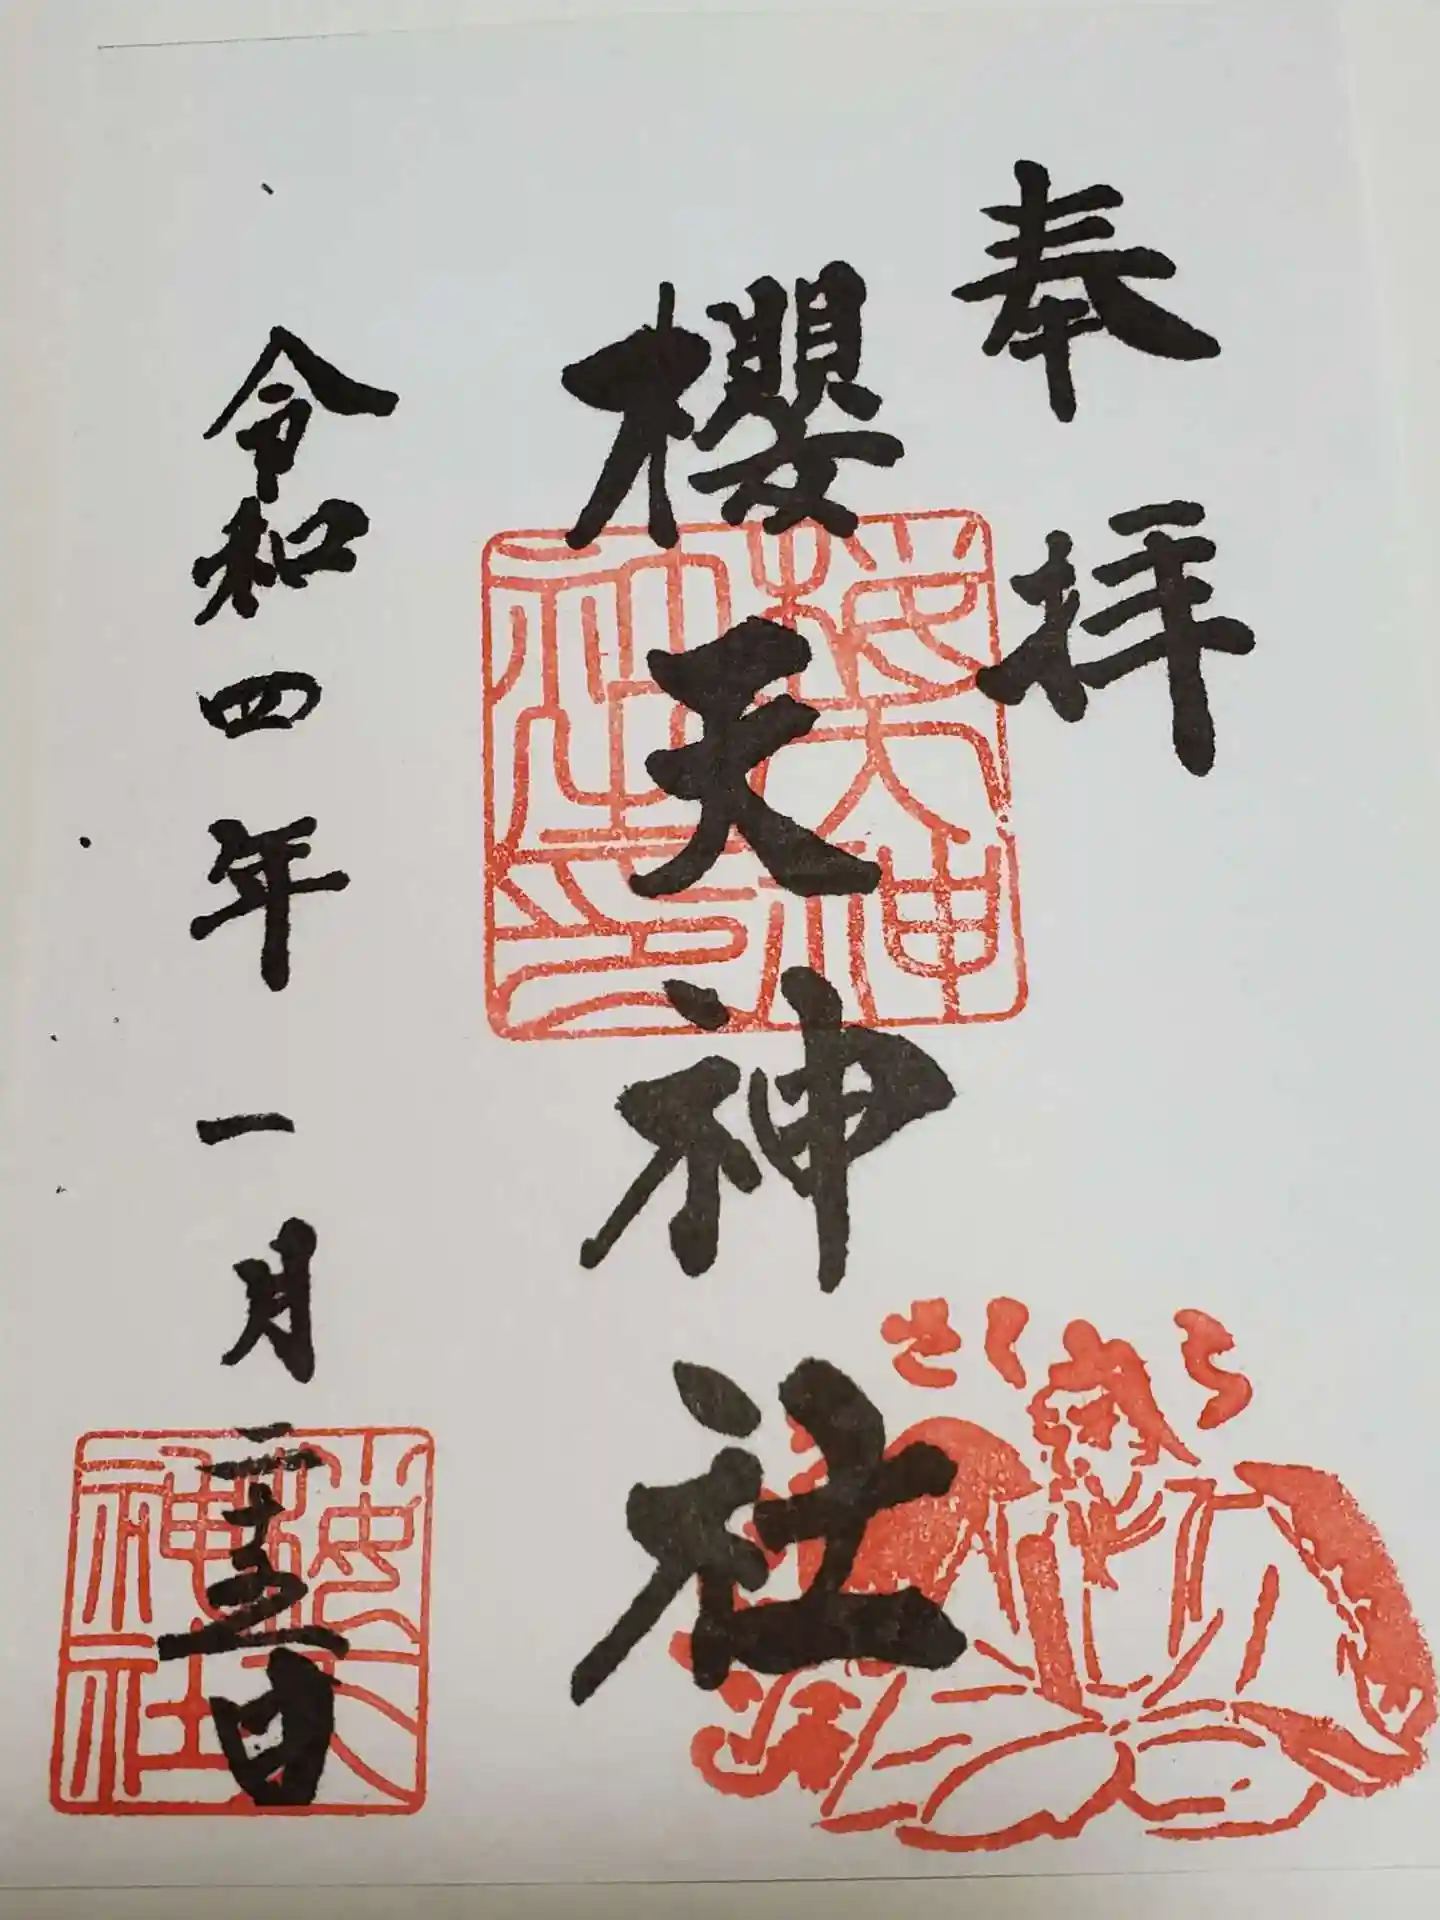 奉拝
櫻天神社
令和四年一月二十五日
桜天神社之印
桜天神社
さくら